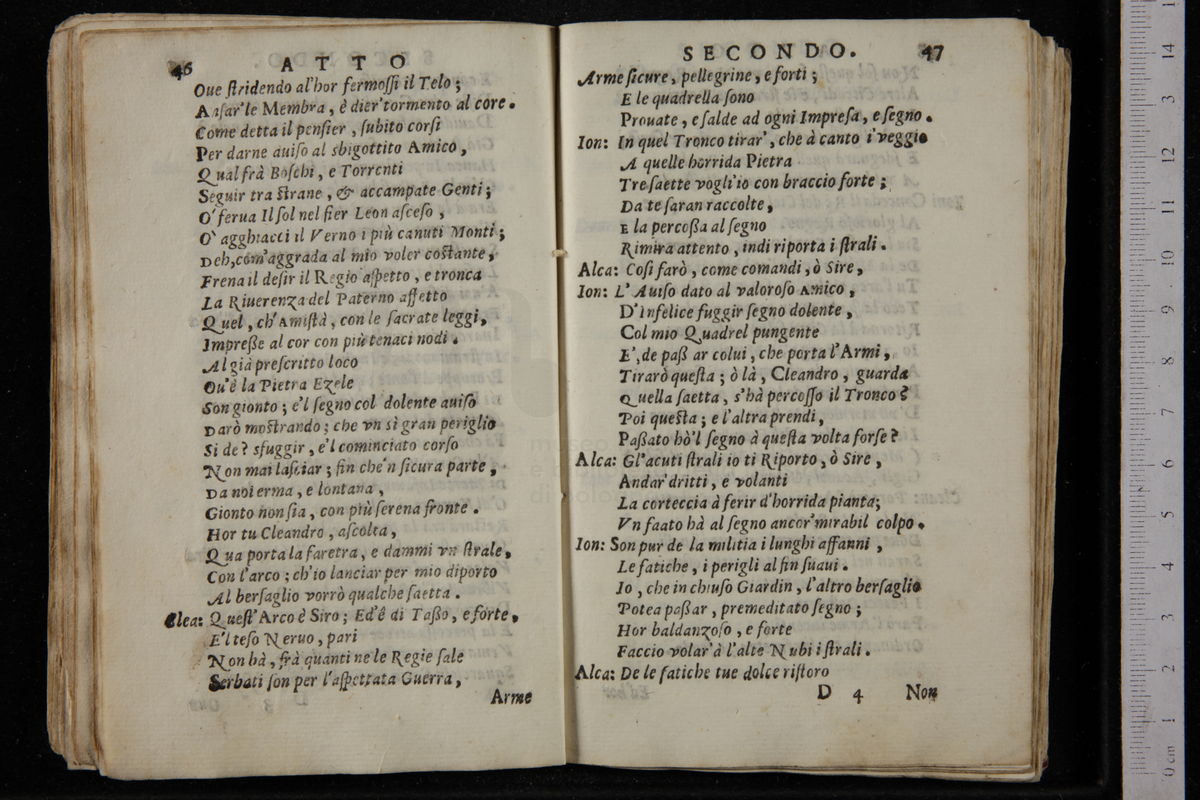 46 ATTO
Oue ſtridendo al'hor fermoſſi il Telo;
Arſar'le Membra, è dier'tormento al core.
Come detta il penſier, ſubito corſi
Per darne auiſo al sbigottito Amico,
Qual frà Boſchi, e Torrenti
Seguir tra ſtrane, & accampate Genti;
O' ferua Il ſol nel fier Leon aſceſo,
O' agghiacci il Verno i più canuti Monti;
Deh, com'aggrada al mio voler coſtante,
Frena il deſir il Regio aſpetto, e tronca
La Riuerenza del Paterno affetto
Quel, ch'Amiſtà, con le ſacrate leggi,
Impreſſe al cor con più tenaci nodi.
Al già preſcritto loco
Ou'è la Pietra Ezele
Son gionto; e'l ſegno col dolente auiſo
Darò moſtrando; che vn sì gran periglio
Si de? sfuggir, e'l cominciato corſo
Non mai laſciar; fin che'n ſicura parte,
Da noi erma, e lontana,
Gionto non ſia, con più ſerena fronte.
Hor tu Cleandro, aſcolta,
Qua porta la faretra, e dammi vn ſtrale,
Con l'arco; ch'io lanciar per mio diporto
Al berſaglio vorrò qualche ſaetta.
Clea: Queſt'Arco è Siro; Ed'è di Taſſo, e forte,
E'l teſo Neruo, pari
Non hà, frà quanti ne le Regie ſale
Serbati ſon per l'aſpettata Guerra,
Arme
SECONDO. 47
Arme ſicure, pellegrine, e forti;
E le quadrella ſono
Prouate, e ſalde ad ogni Impreſa, e ſegno.
Ion: In quel Tronco tirar', che à canto i'veggio
A quelle horrida Pietra
Tre ſaette vogli'io con braccio forte;
Da te ſaran raccolte,
E la percoſſa al ſegno
Rimira attento, indi riporta i ſtrali.
Alca: Coſi farò, come comandi, ò Sire,
Ion: L'Auiſo dato al valoroſo Amico,
D'Infelice fuggir ſegno dolente,
Col mio Quadrel pungente
E', de paſſ ar colui, che porta l'Armi,
Tirarò queſta; ò là, Cleandro, guarda
Quella ſaetta, s'hà percoſſo il Tronco?
Poi queſta; e l'altra prendi,
Paſſato hò'l ſegno à queſta volta forſe?
Alca: Gl'acuti ſtrali io ti Riporto, ò Sire,
Andar'dritti, e volanti
La corteccia à ferir d'horrida pianta;
Vn faato hà al ſegno ancor'mirabil colpo.
Ion: Son pur de la militia i lunghi affanni,
Le fatiche, i perigli al fin ſuaui.
Io, che in chiuſo Giardin, l'altro berſaglio
Potea paſſar, premeditato ſegno;
Hor baldanzoſo, e forte
Faccio volar'à l'alte Nubi i ſtrali.
Alca: De le fatiche tue dolce riſtoro
D 4 Non